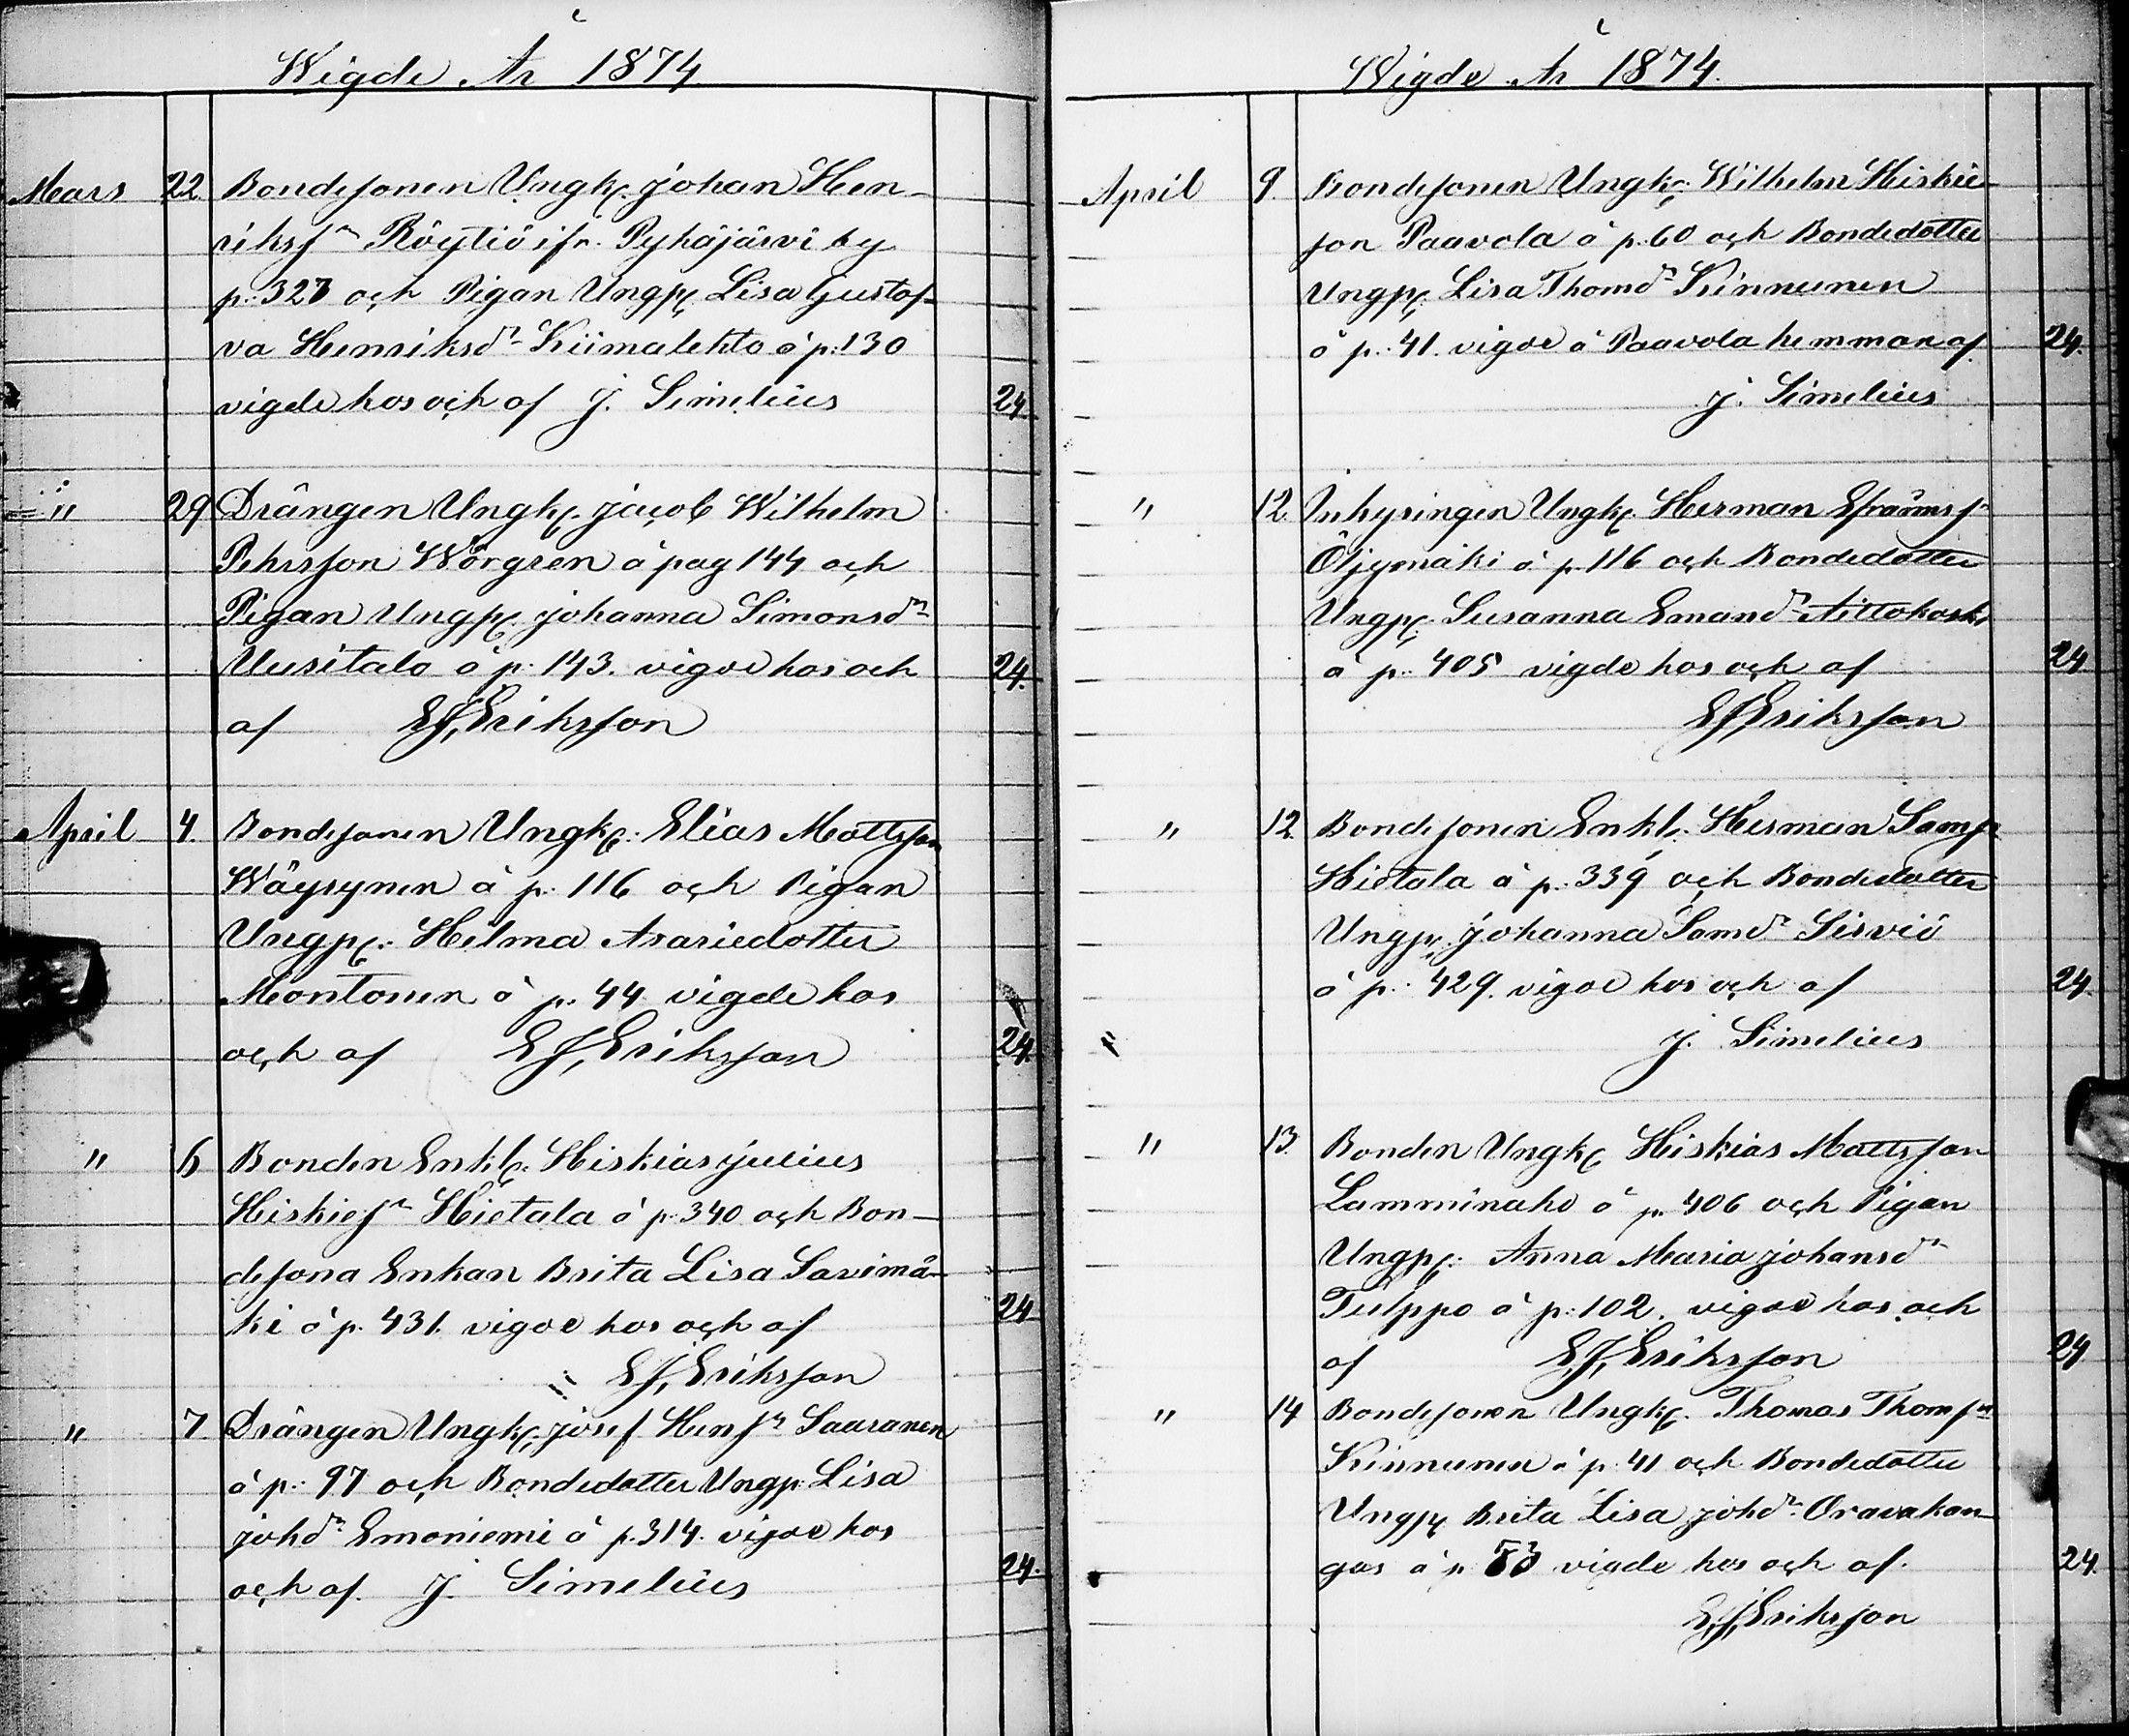 Wigde År 1874
Mars 22. Bondesonen Ungk. Johan Hen-
riksson Röytiö ifr. Pyhäjärvi by
p. 327 och Pigan Ungp. Lisa Gustaf-
va Henriksdr Kiimalehto å p. 130
vigde hos och af J. Simelius 24
" 29 Drängen Ungk. Jacob Wilhelm
Pehrsson Wörgren å pag 144 och
Pigan Ungp. Johanna Simonsdr
Uusitalo å p. 143. vigde hos och 24.
af EJ, Eriksson
April 4. Bondesonen Ungk. Elias Mattsson
Wäyrynen å p. 116 och Pigan
Ungp. Helma Asariedotter
Montonen å p. 44 vigde hos
och af EJ, Eriksson 24.
" 6 Bonden Enkl. Hiskias Julius
Hiskiesn Hietala å p. 340 och Bon-
desona Enkan Brita Lisa Savimä-
ki å p. 431. vigde hos och af 24
EJ, Eriksson
" 7 Drängen Ungk. Josef Hensn Saaranen
å p. 97 och Bondedotter Ungp. Lisa
Johdr Emoniemi å p. 314. vigde hos
och af. J. Simelius 24.
Wigde År 1874.
April 9. Bondesonen Ungk. Wilhelm Hiskie-
son Paavola å p. 60 och Bondedotter
Ungp. Lisa Thomdr Kinnunen
å p. 41. vigde å Paavola hemman af 24.
J. Simelius
" 12. Inhysingen Ungk. Herman Efraimsn
Öljymäki å p. 116 och Bondedotter
Ungp. Susanna Emandr Aittokoski
å p. 405 vigde hos och af 24
EJ, Eriksson
" 12. Bondesonen Enkl. Herman Samsn
Hietala å p. 339 och Bondedotter
Ungp. Johanna Samdr Sirviö
å p. 429. vigde hos och af 24.
J. Simelius
" 13. Bonden Ungk. Hiskias Mattsson
Lamminaho å p. 406 och Pigan
Ungp. Anna Maria Johansdr
Tulppo å p. 102. vigde hos och
af EJ, Eriksson 24
" 14 Bondesonen Ungk. Thomas Thomsn
Kinnunen å p. 41 och Bondedotter
Ungp. Brita Lisa Johdr Oravakan-
gas å p. 53 vigde hos och af. 24.
EJ, Eriksson